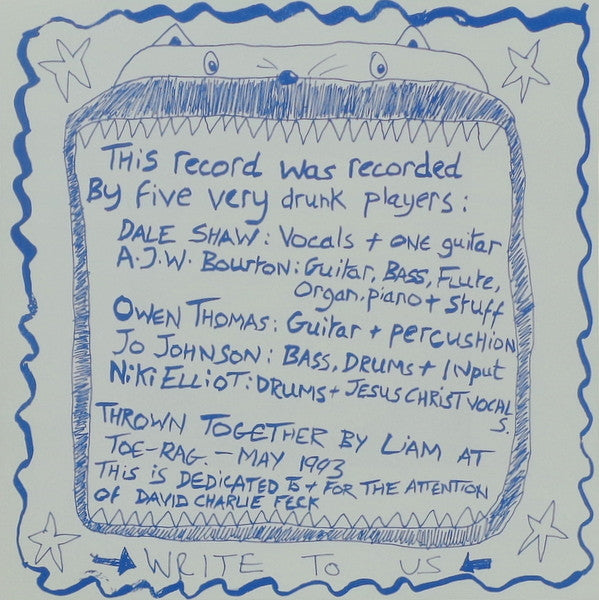 This record was recorded
By five very drunk players:
DALE SHAW: Vocals + one guitar
A.J.W. Bourton: Guitar, Bass, Flute,
Organ. piano + stuff
Owen Thomas: Guitar + percushion
Jo Johnson: Bass, Drums + Input
Niki Elliot: Drums + Jesus Christ vocal
s.
Thrown together by Liam at
Toe-Rag. - May 1993
This is dedicated to + for the attention
of David Charlie Feck
WRITE TO US